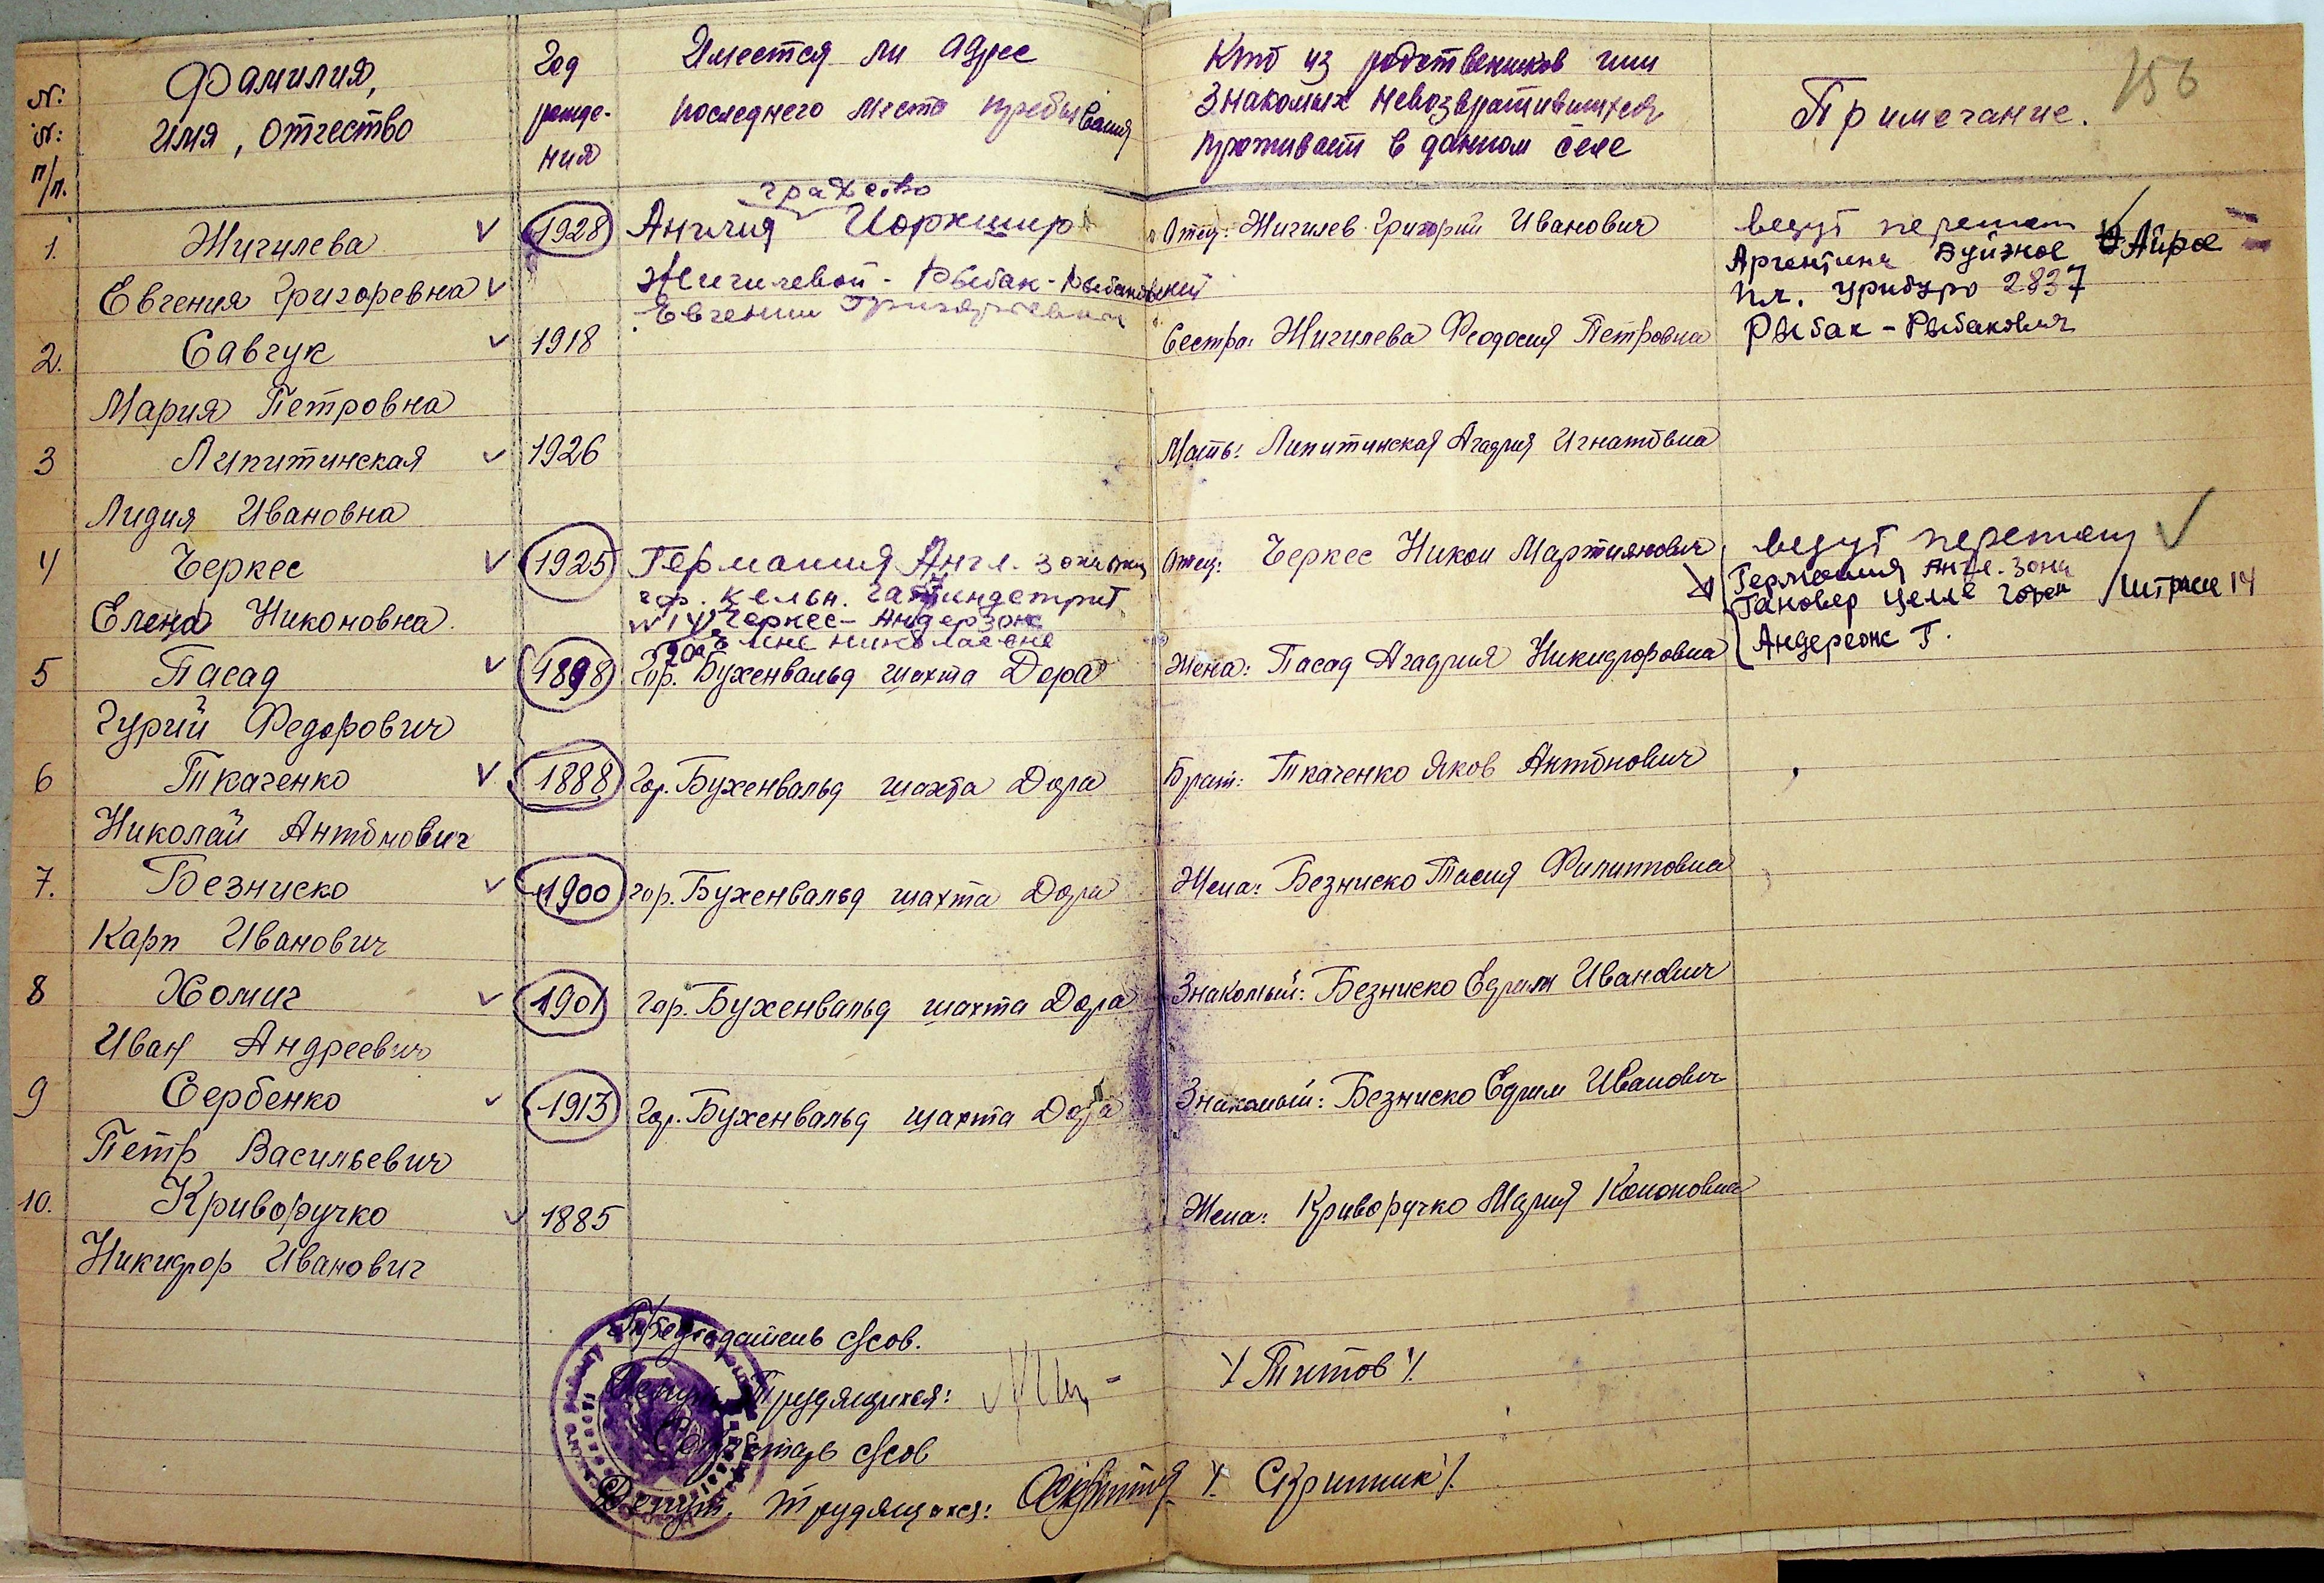 156
№: №: п/п.
Фамилия, имя, отчество
Год рожде-ния
Имеется ли адрес последнего места пребывания
Кто из родственников или знакомых невозвратившихся проживает в данном селе
Примечание.
1. Жигилева ✓ 1928 графство
Англия Йоркшир Отец: Жигилев Григорий Иванович ведут переписк ✓
Евгения Григоревна ✓ Жигилевой - Рыбак - Рыбаковский Аргентина Буйзное Айрос
Евгении Григорьевны пл. 2837
2. Савчук ✓ 1918 Сестра: Жигилева Феодосия Петровна Рыбак - Рыбакович
Мария Петровна
3 Липитинская ✓ 1926 Мать: Липитинская Агафия Игнатовна
Лидия Ивановна
4 Черкес ✓ 1925 Германия Англ. зона Отец: Черкес Никон Мартиянович ведут переписк ✓
гор. Кельн. Германия Англ. зона
Елена Никоновна. N 14 Черкес - Андерзонж Гановер Целле Штрасе 14
Елене Николаевне Андережж Г.
5 Пасад ✓ 1898 гор. Бухенвальд шахта Дора Жена: Пасад Агафия Никифоровна
Гурий Федорович
6 Ткаченко ✓ 1888 гор. Бухенвальд шахта Дора Брат: Ткаченко Яков Антонович
Николай Антонович
7. Безниско ✓ 1900 гор. Бухенвальд шахта Дора Жена: Безниско Тасия Филипповна
Карп Иванович
8 Хомич ✓ 1901 гор. Бухенвальд шахта Дора Знакомый: Безниско Ефим Иванович
Иван Андреевич
9 Сербенко ✓ 1913 гор. Бухенвальд шахта Дора Знакомый: Безниско Ефим Иванович
Петр Васильевич
10. Криворучко ✓ 1885 Жена: Криворучко Мария Кононовна
Никифор Иванович
Председатель с/сов.
Депут. Трудящихся: /Титов/
Секретарь с/сов
Депут. трудящихся: /Скрипник/.